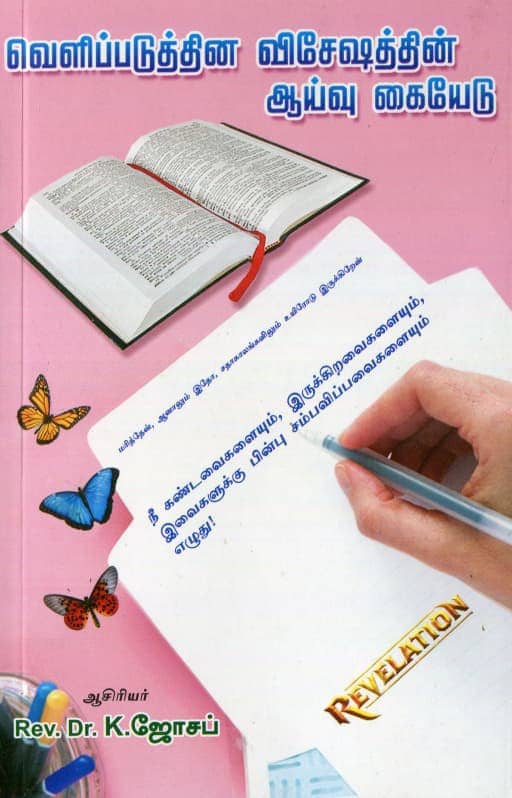 வெளிப்படுத்தின விசேஷத்தின்
ஆய்வு கையேடு
மரித்தேன், ஆனாலும் இதோ, சதாகாலங்களிலும் உயிரோடு இருக்கிறேன்
நீ கண்டவைகளையும், இருக்கிறவைகளையும்,
இவைகளுக்கு பின்பு சம்பவிப்பவைகளையும்
எழுது!
REVELATION
ஆசிரியர்
Rev. Dr. K.ஜோசப்